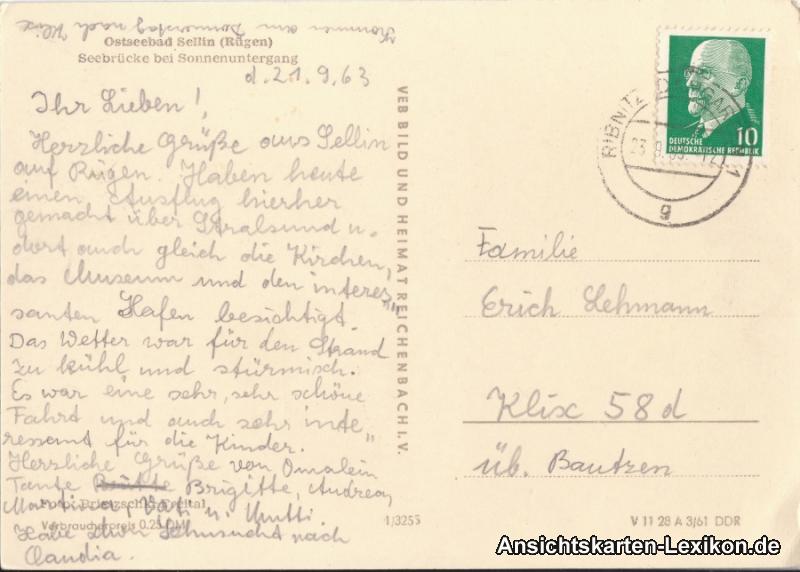 Kommen am Donnerstag nach Klix
Ostseebad Sellin (Rügen)
Seebrücke bei Sonnenuntergang
d. 21.9.63
Ihr Lieben!
Herzliche Grüße aus Sellin
auf Rügen. Haben heute
einen Ausflug hierher
gemacht über Stralsund u.
dort auch gleich die Kirchen,
das Museum und den interes-
santen Hafen besichtigt.
Das Wetter war für den Strand
zu kühl und stürmisch.
Es war eine sehr, sehr schöne
Fahrt und auch sehr inte-
ressant für die Kinder.
Herzliche Grüße von Omalein
Tante Brigitte, Andrea,
Vati u. Mutti.
Foto: Freital
Verbraucherpreis 0.25 DM
Habe Sehnsucht nach
Claudia.
VEB BILD UND HEIMAT REICHENBACH I. V.
1/3255
DEUTSCHE
DEMOKRATISCHE REPUBLIK
10
RIBNITZ
1
g
Familie
Erich Lehmann
Klix 58 d
üb. Bautzen
V 11 28 A 3/61 DDR
Ansichtskarten-Lexikon.de